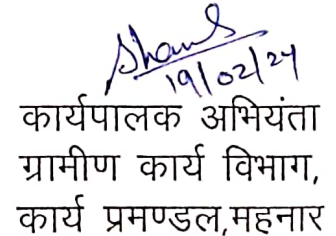 19/02/24
कार्यपालक अभियंता
ग्रामीण कार्य विभाग,
कार्य प्रमण्डल,महनार